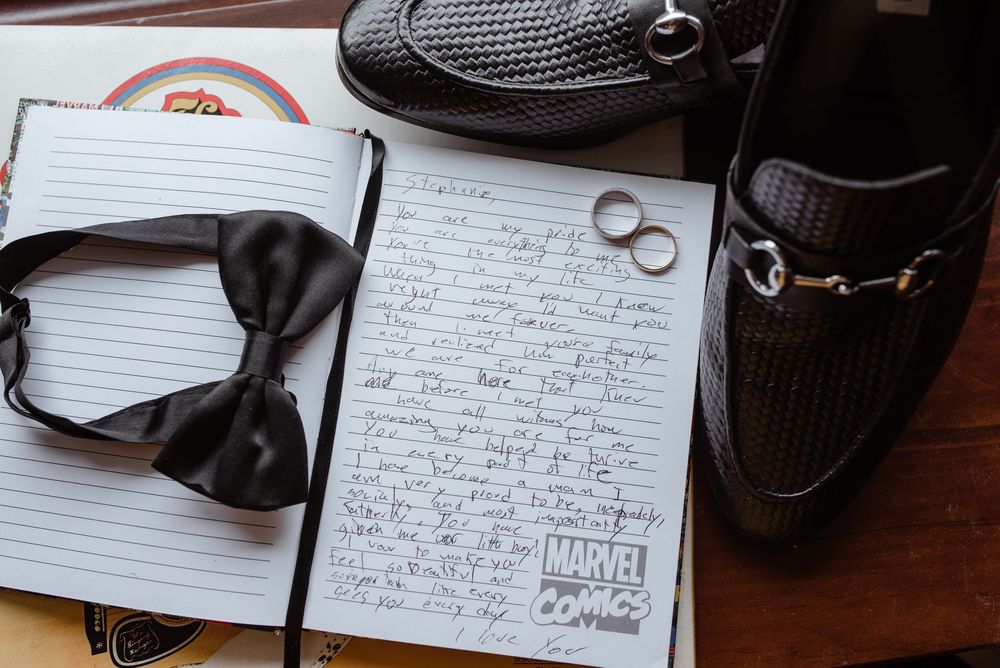 Stephanie,
You are my pride
You are everything to me
You're the most exciting
thing in my life
When I met you I knew
right away I'd want you
around me forever.
Then I met your family
and realized how perfect
we are for eachother.
Any one here that knew
me before I met you
have all witness how
amazing you are for me
You have helped be thrive
in every part of life
I have become a man I
am very proud to be,
socially, and most importantly
fatherly, You have
given me our little boy!
I vow to make you
feel so beautiful and
like every
sees you every day
I love You
MARVEL
COMICS